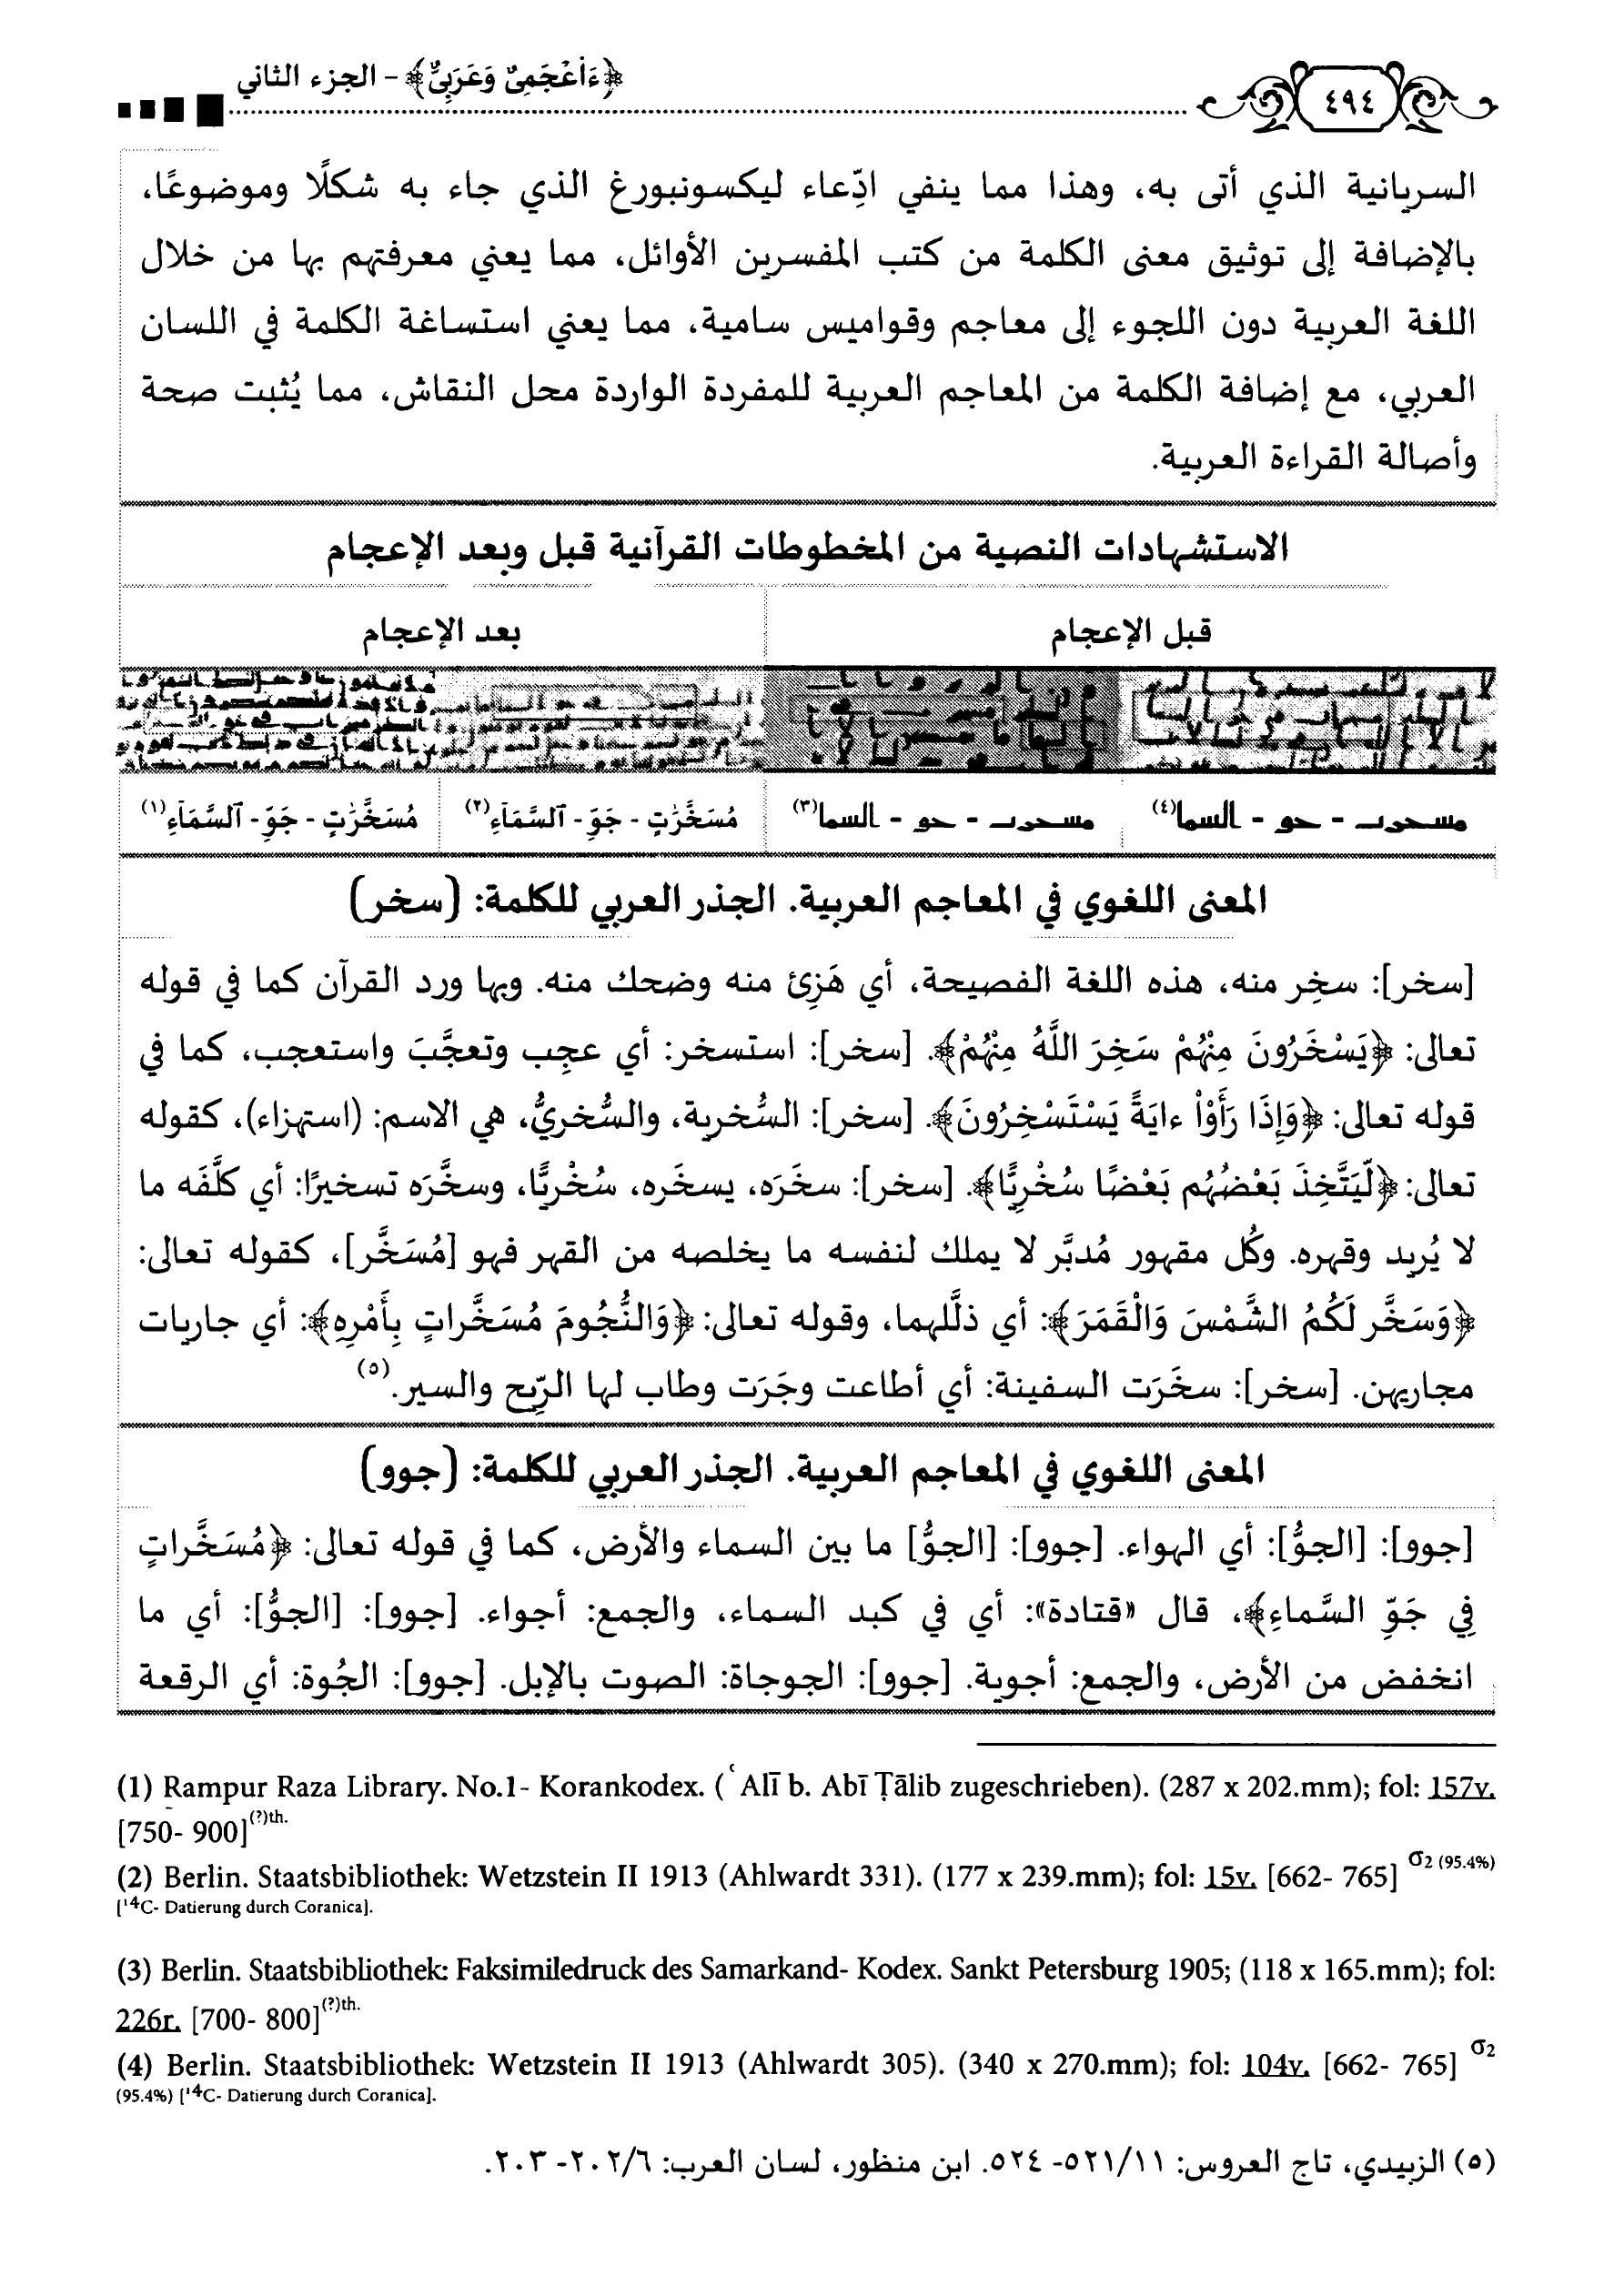 ٤٩٤
﴿ءَا۬عْجَمِىٌّ وَعَرَبِىٌّ﴾ - الجزء الثاني
السريانية الذي أتى به، وهذا مما ينفي ادِّعاء ليكسونبورغ الذي جاء به شكلًا وموضوعًا،
بالإضافة إلى توثيق معنى الكلمة من كتب المفسرين الأوائل، مما يعني معرفتهم بها من خلال
اللغة العربية دون اللجوء إلى معاجم وقواميس سامية، مما يعني استساغة الكلمة في اللسان
العربي، مع إضافة الكلمة من المعاجم العربية للمفردة الواردة محل النقاش، مما يُثبت صحة
وأصالة القراءة العربية.
الاستشهادات النصية من المخطوطات القرآنية قبل وبعد الإعجام
قبل الإعجام
بعد الإعجام
مسحرٮ - حو - السما(٤)
مسحرٮ - حو - السما(٣)
مُسَخَّرَٰتٍ - جَوِّ - ٱلسَّمَآءِ(٢)
مُسَخَّرَٰتٍ - جَوِّ - ٱلسَّمَآءِ(١)
المعنى اللغوي في المعاجم العربية. الجذر العربي للكلمة: (سخر)
[سخر]: سخِر منه، هذه اللغة الفصيحة، أي هَزِئ منه وضحك منه. وبها ورد القرآن كما في قوله
تعالى: ﴿يَسْخَرُونَ مِنْهُمْ سَخِرَ اللَّهُ مِنْهُمْ﴾. [سخر]: استسخر: أي عجِب وتعجَّبَ واستعجب، كما في
قوله تعالى: ﴿وَإِذَا رَأَوْاْ ءايَةً يَسْتَسْخِرُونَ﴾. [سخر]: السُّخرية، والسُّخريُّ، هي الاسم: (استهزاء)، كقوله
تعالى: ﴿لِّيَتَّخِذَ بَعْضُهُم بَعْضًا سُخْرِيًّا﴾. [سخر]: سخَرَه، يسخَره، سُخْريًّا، وسخَّرَه تسخيرًا: أي كلَّفَه ما
لا يُريد وقهره. وكُل مقهور مُدبَّر لا يملك لنفسه ما يخلصه من القهر فهو [مُسَخَّر]، كقوله تعالى:
﴿وَسَخَّر لَكُمُ الشَّمْسَ وَالْقَمَرَ﴾: أي ذلَّلهما، وقوله تعالى: ﴿وَالنُّجُومَ مُسَخَّراتٍ بِأَمْرِهِ﴾: أي جاريات
مجاريهن. [سخر]: سخَرَت السفينة: أي أطاعت وجَرَت وطاب لها الرِّيح والسير.(٥)
المعنى اللغوي في المعاجم العربية. الجذر العربي للكلمة: (جوو)
[جوو]: [الجوُّ]: أي الهواء. [جوو]: [الجوُّ] ما بين السماء والأرض، كما في قوله تعالى: ﴿مُسَخَّراتٍ
فِي جَوِّ السَّماءِ﴾، قال «قتادة»: أي في كبد السماء، والجمع: أجواء. [جوو]: [الجوُّ]: أي ما
انخفض من الأرض، والجمع: أجوية. [جوو]: الجوجاة: الصوت بالإبل. [جوو]: الجُوة: أي الرقعة
(1) Rampur Raza Library. No.1- Korankodex. (ʿAlī b. Abī Ṭālib zugeschrieben). (287 x 202.mm); fol: 157v.
[750- 900](?)th.
(2) Berlin. Staatsbibliothek: Wetzstein II 1913 (Ahlwardt 331). (177 x 239.mm); fol: 15v. [662- 765] σ2 (95.4%)
[14C- Datierung durch Coranica].
(3) Berlin. Staatsbibliothek: Faksimiledruck des Samarkand- Kodex. Sankt Petersburg 1905; (118 x 165.mm); fol:
226r. [700- 800](?)th.
(4) Berlin. Staatsbibliothek: Wetzstein II 1913 (Ahlwardt 305). (340 x 270.mm); fol: 104v. [662- 765] σ2
(95.4%) [14C- Datierung durch Coranica].
(٥) الزبيدي، تاج العروس: ٥٢١/١١- ٥٢٤. ابن منظور، لسان العرب: ٢٠٢/٦- ٢٠٣.